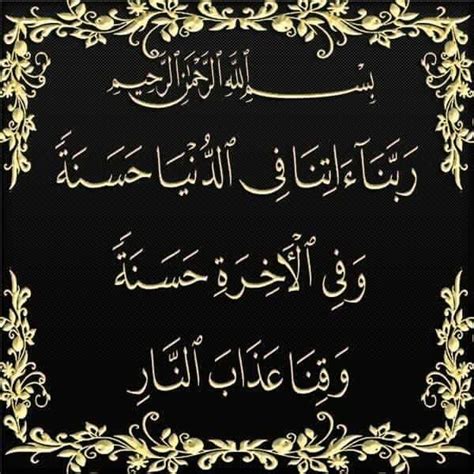 بِسْمِ ٱللَّهِ ٱلرَّحْمَٰنِ ٱلرَّحِيمِ
رَبَّنَآ ءَاتِنَا فِى ٱلدُّنْيَا حَسَنَةً
وَفِى ٱلْأَخِرَةِ حَسَنَةً
وَقِنَا عَذَابَ ٱلنَّارِ